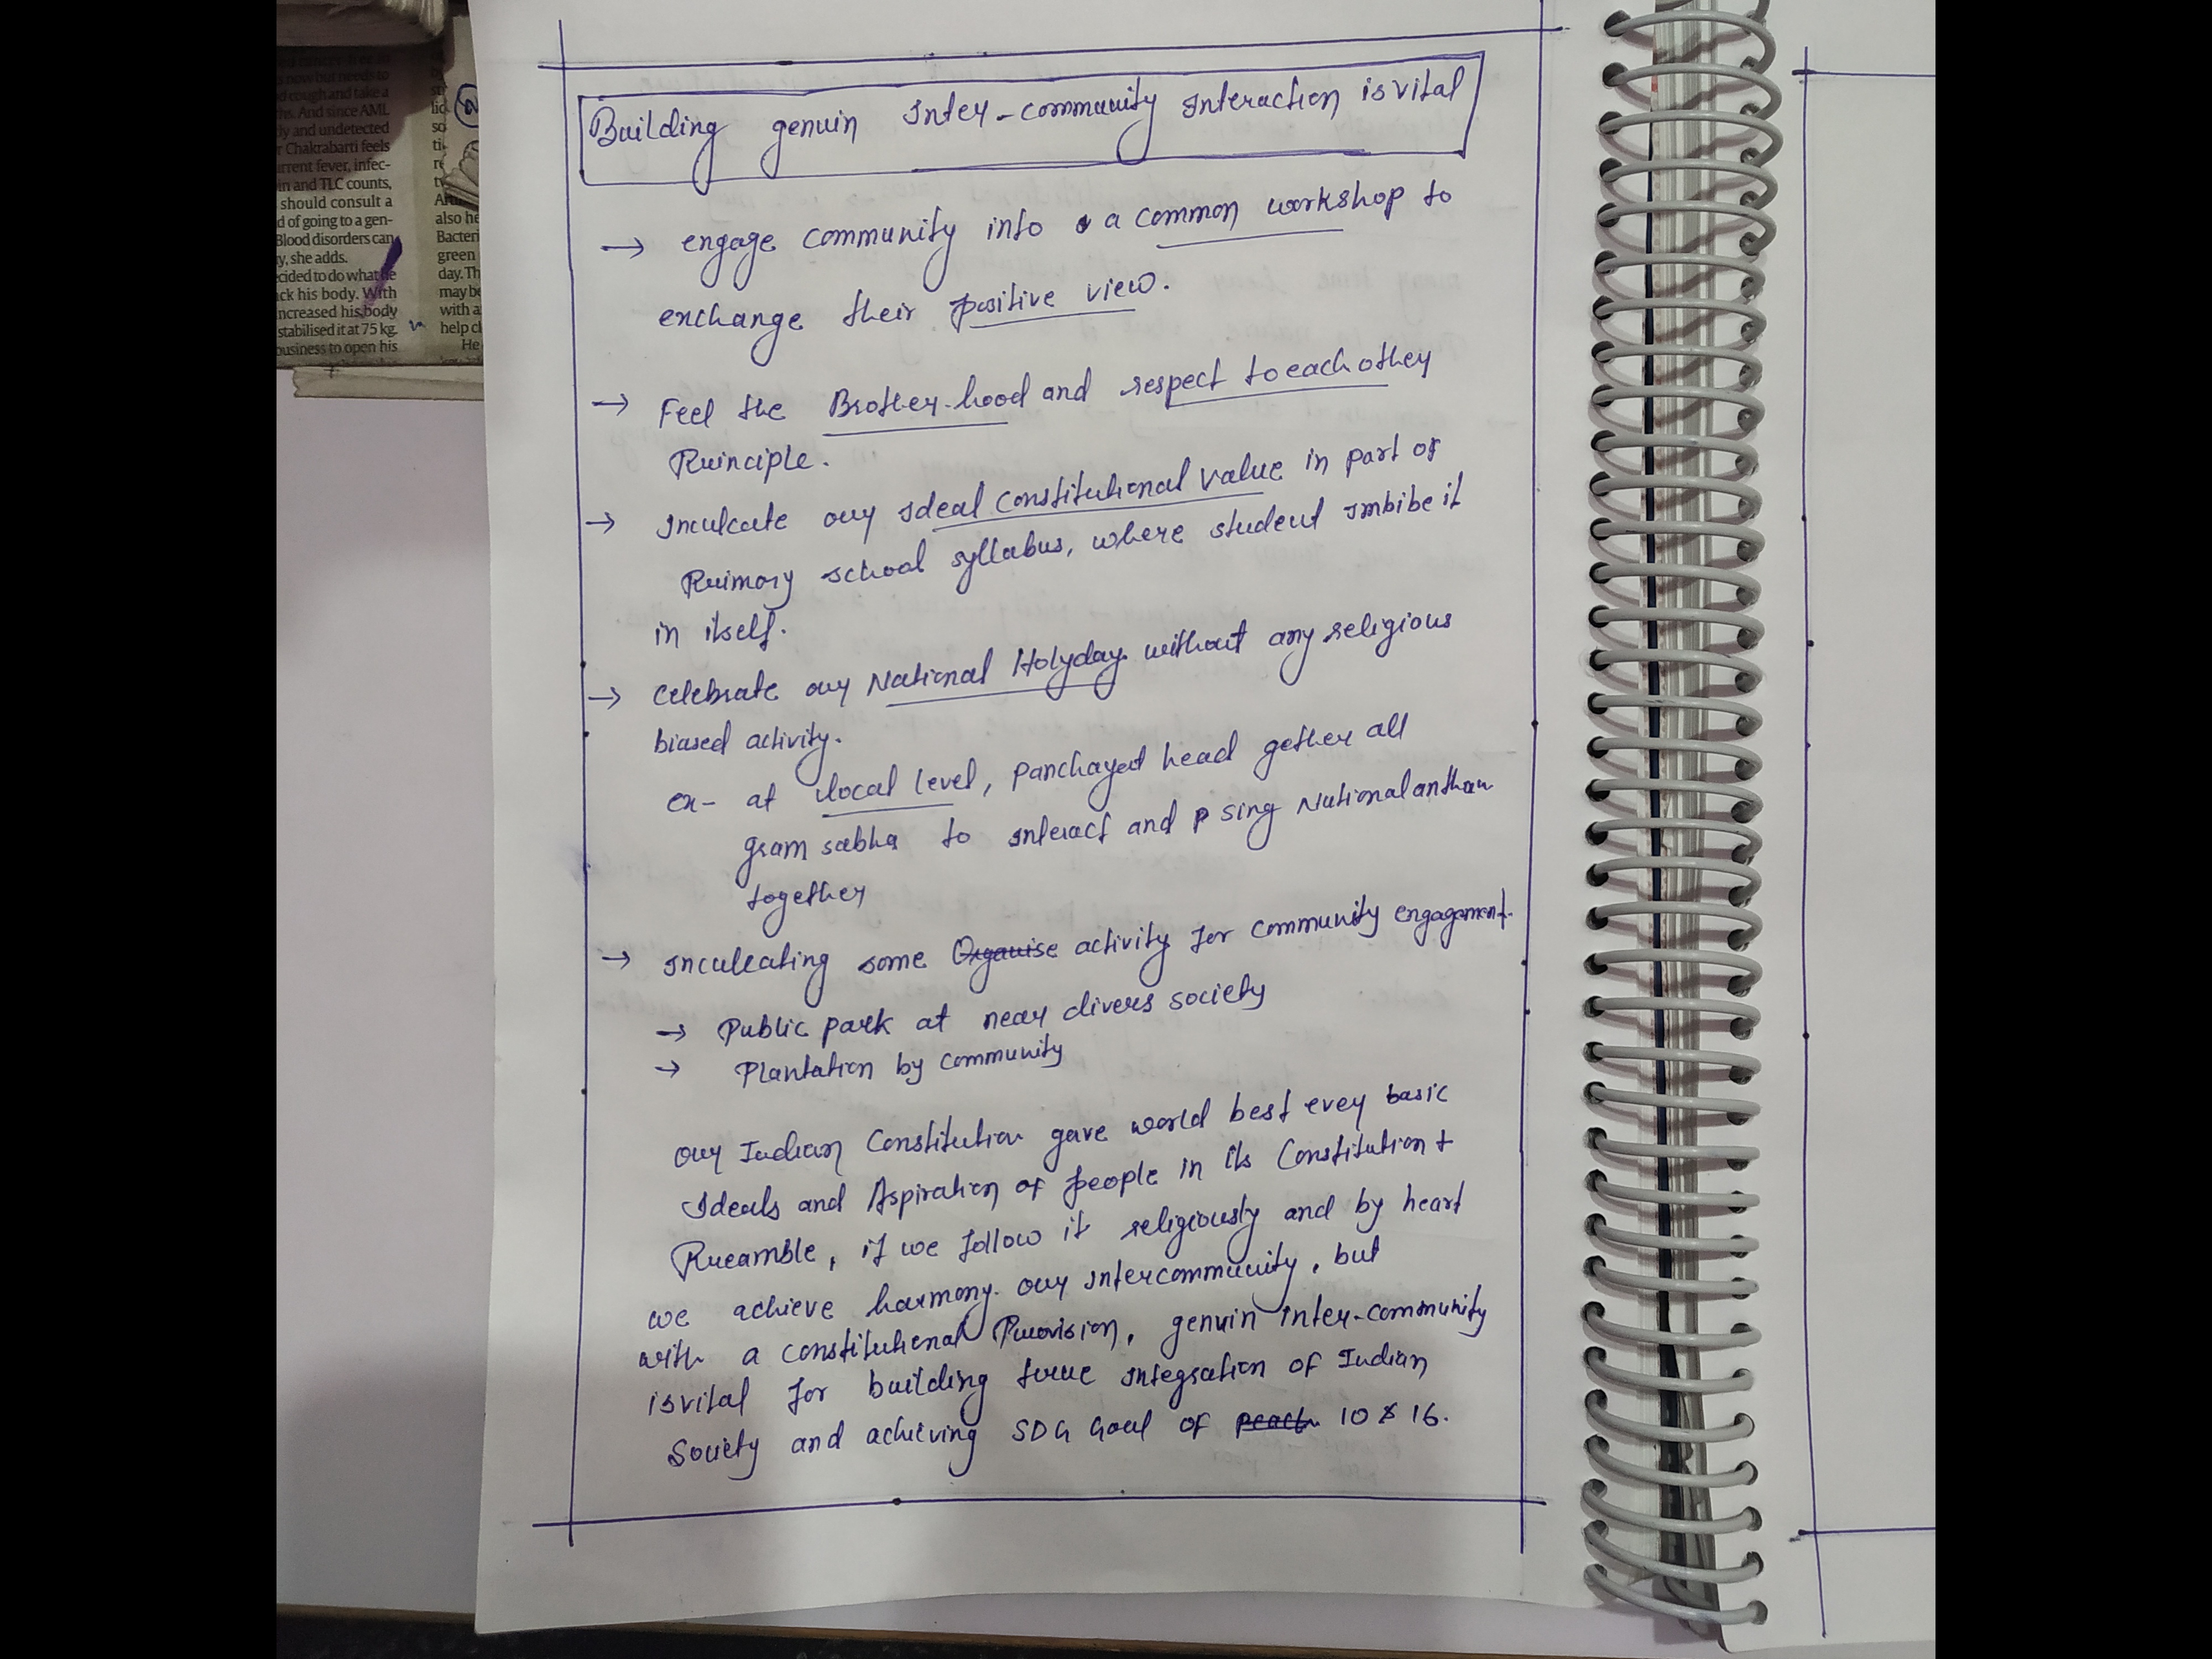 ed cancer-free in
s now but needs to
d cough and take a
hs. And since AML
ly and undetected
r Chakrabarti feels
urrent fever, infec-
in and TLC counts,
should consult a
d of going to a gen-
Blood disorders can
y, she adds.
cided to do what he
ack his body. With
ncreased his body
stabilised it at 75 kg.
business to open his
so
ti
also he
Bacteri
green
day. Th
may be
with a
help cl
He
Building genuin Inter-community Interaction is vital
→ engage community into a common workshop to
exchange their positive view.
→ Feel the Brother-hood and respect to each other
Principle.
→ Inculcate our Ideal Constitutional value in part of
Primary school syllabus, where student Imbibe it
in itself.
→ Celebrate our National Holyday without any religious
biased activity.
ex- at local level, Panchayed head gether all
gram sabha to Interact and sing National antham
together
→ Inculcating some Organise activity for community engagement.
→ Public park at near divers society
→ Plantation by community
Our Indian Constitution gave world best evey basic
Ideals and Aspiration of people in its Constitution +
Preamble, if we follow it religiously and by heart
we achieve harmony. our intercommunity, but
with a constitutional Provision, genuin inter-community
is vital for building true integration of Indian
Society and achieving SDG Goal of 10 & 16.